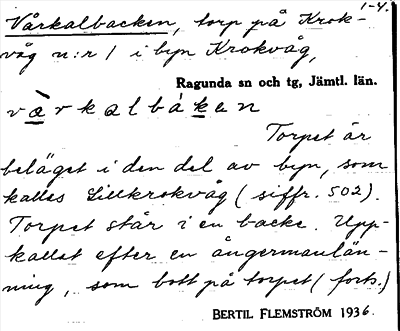 1-4.
Vårkalbacken, torp på Krok-
våg n:r 1 i byn Krokvåg,
Ragunda sn och tg, Jämtl. län.
værkalbàken
Torpet är
beläget i den del av byn, som
kallas Lillkrokvåg (siffr. 502).
Torpet står i en backe. Upp-
kallat efter en ångermanlän-
ning, som bott på torpet (forts.)
BERTIL FLEMSTRÖM 1936.